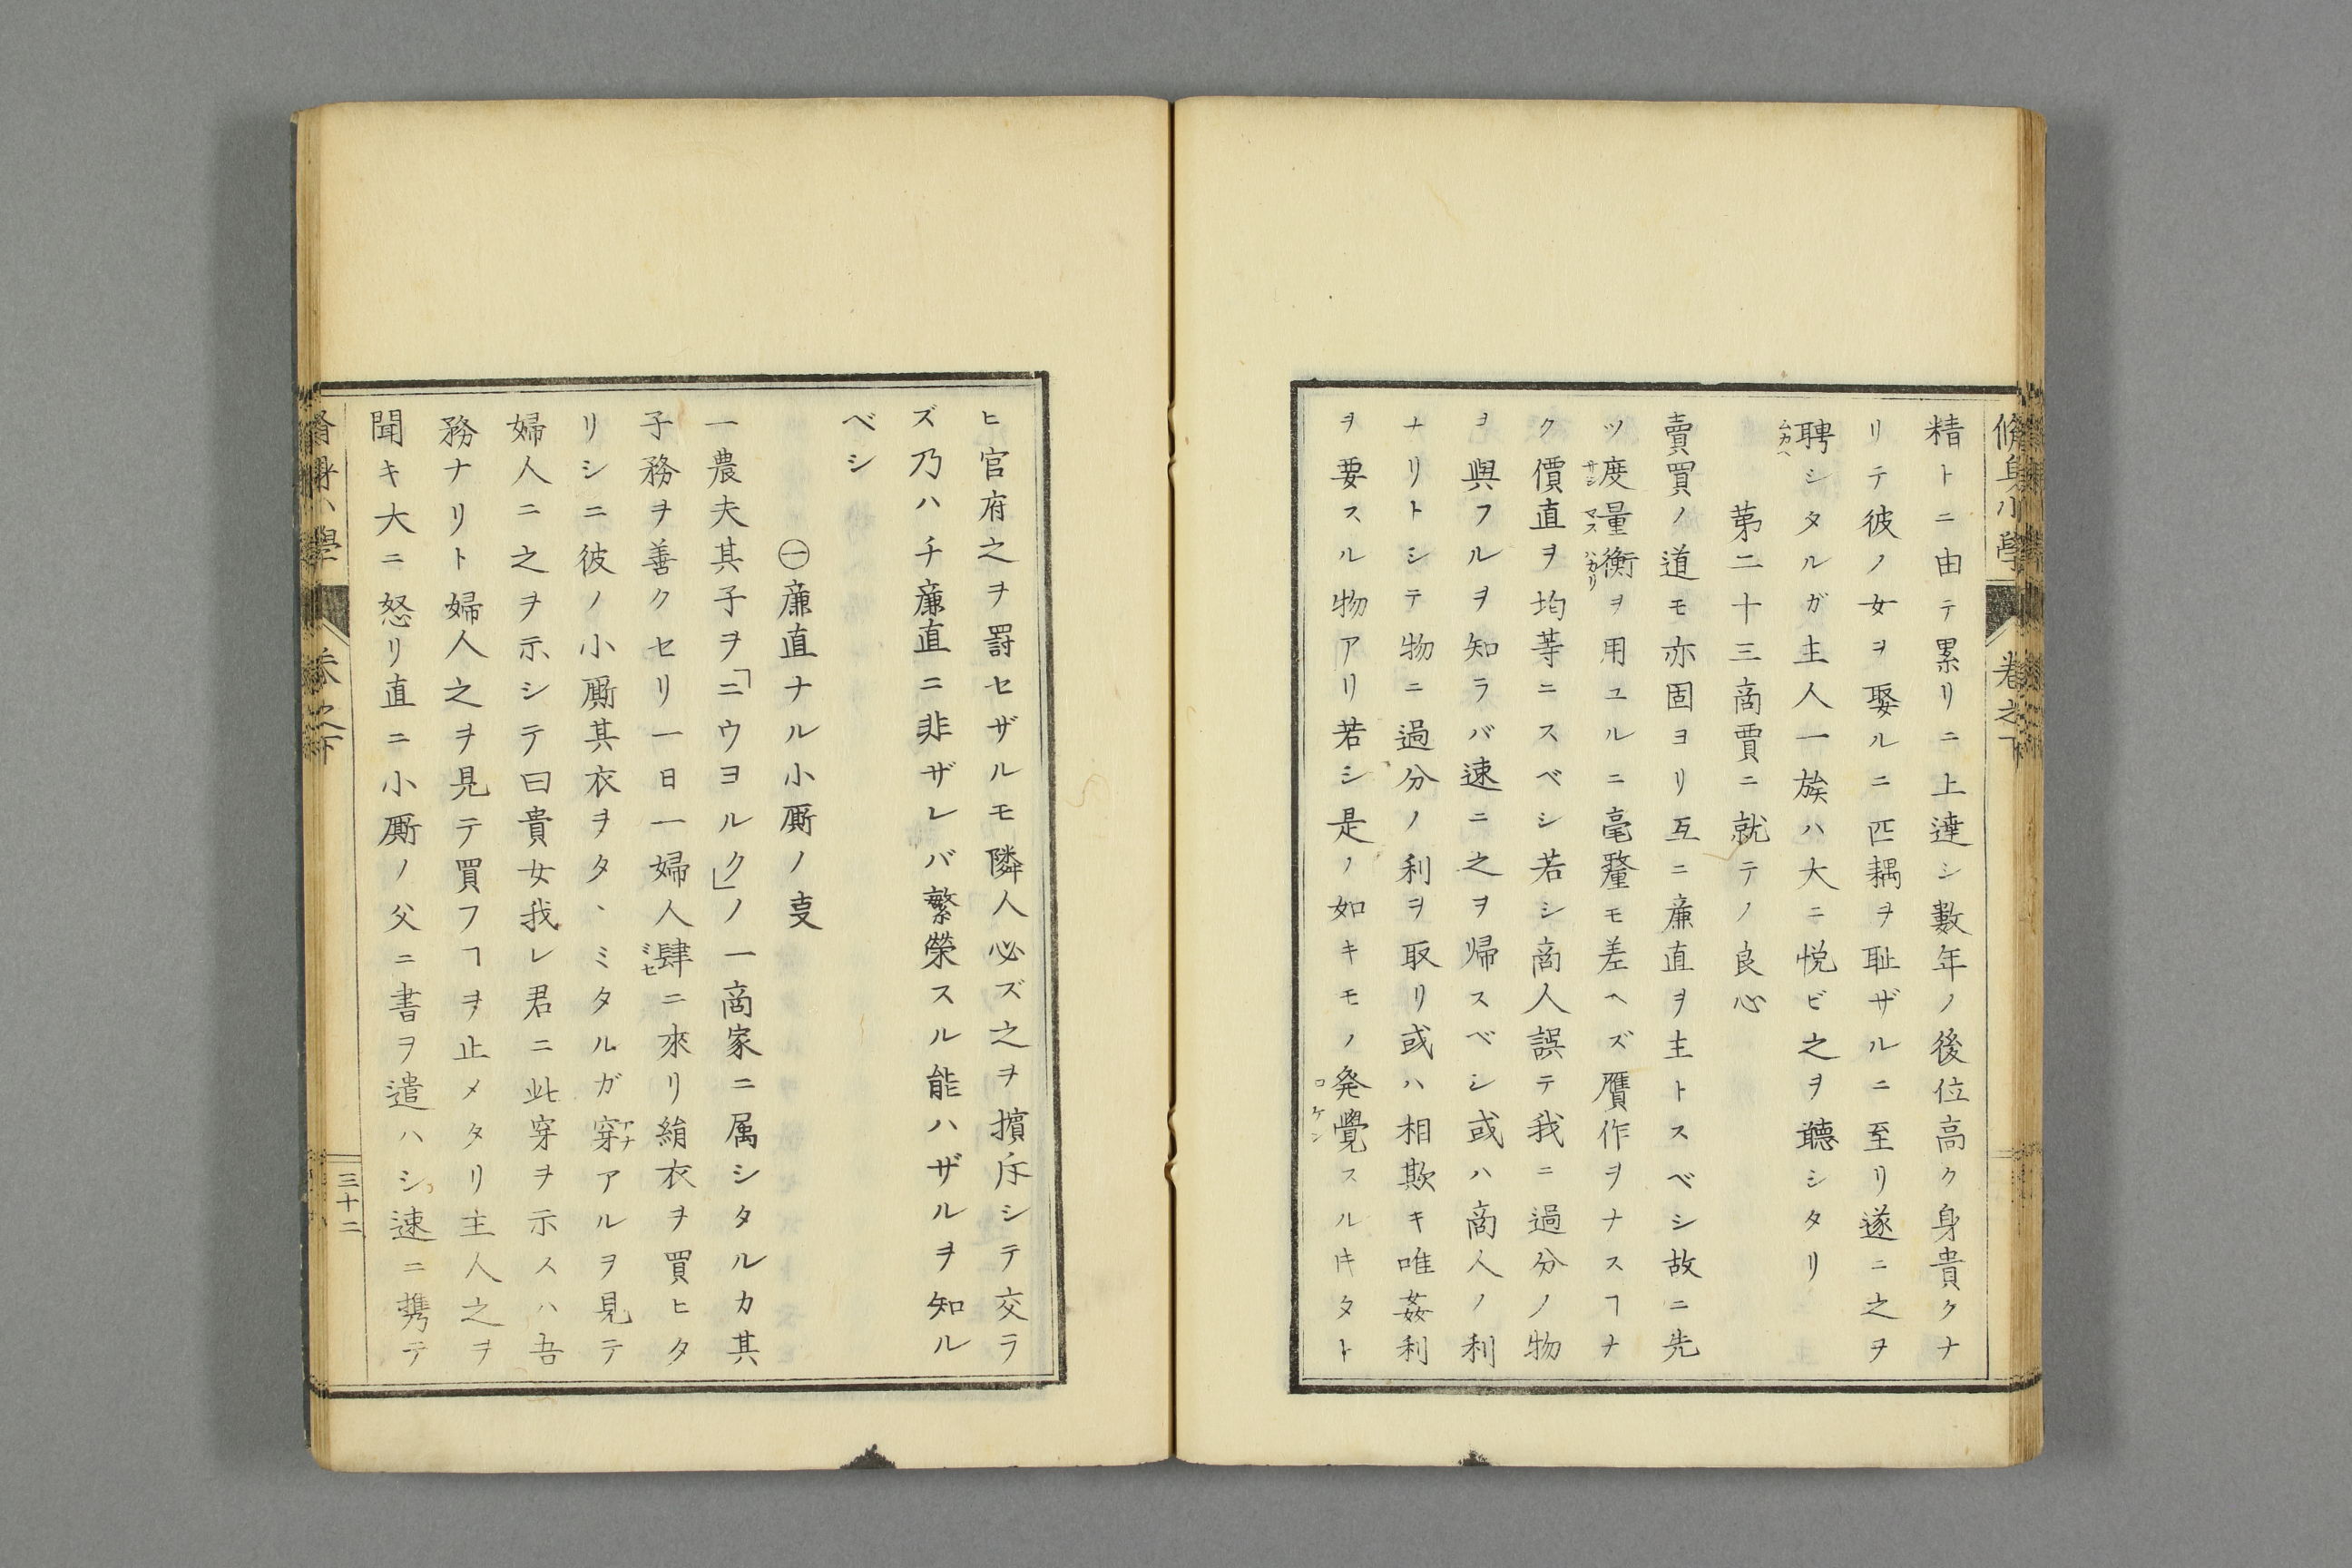 脩身小學 卷之下
精トニ由テ累リニ上達シ數年ノ後位高ク身貴クナ
リテ彼ノ女ヲ娶ルニ匹耦ヲ耻ザルニ至リ遂ニ之ヲ
聘シタルガ主人一族ハ大ニ悦ビ之ヲ聽シタリ
ムカヘ
苐二十三商賈ニ就テノ良心
賣買ノ道モ亦固ヨリ互ニ廉直ヲ主トスベシ故ニ先
ツ度量衡ヲ用ユルニ毫釐モ差ヘズ贋作ヲナスヿナ
サシ マス ハカリ
ク價直ヲ均等ニスベシ若シ商人誤テ我ニ過分ノ物
ヲ與フルヲ知ラバ速ニ之ヲ帰スベシ或ハ商人ノ利
ナリトシテ物ニ過分ノ利ヲ取リ或ハ相欺キ唯姦利
ヲ要スル物アリ若シ是ノ如キモノ発覺スルキタト
ロケン
ヒ官府之ヲ罸セザルモ隣人必ズ之ヲ擯斥シテ交ラ
ズ乃ハチ廉直ニ非ザレバ繁榮スル能ハザルヲ知ル
ベシ
㊀廉直ナル小厮ノ叓
一農夫其子ヲ「ニウヨルク」ノ一商家ニ属シタルカ其
子務ヲ善クセリ一日一婦人肆ニ來リ絹衣ヲ買ヒタ
ミセ
リシニ彼ノ小厮其衣ヲタヽミタルガ穿アルヲ見テ
アナ
婦人ニ之ヲ示シテ曰貴女我レ君ニ此穿ヲ示スハ吾
務ナリト婦人之ヲ見テ買フヿヲ止メタリ主人之ヲ
聞キ大ニ怒リ直ニ小厮ノ父ニ書ヲ遣ハシ速ニ携テ
脩身小學 卷之下 三十二